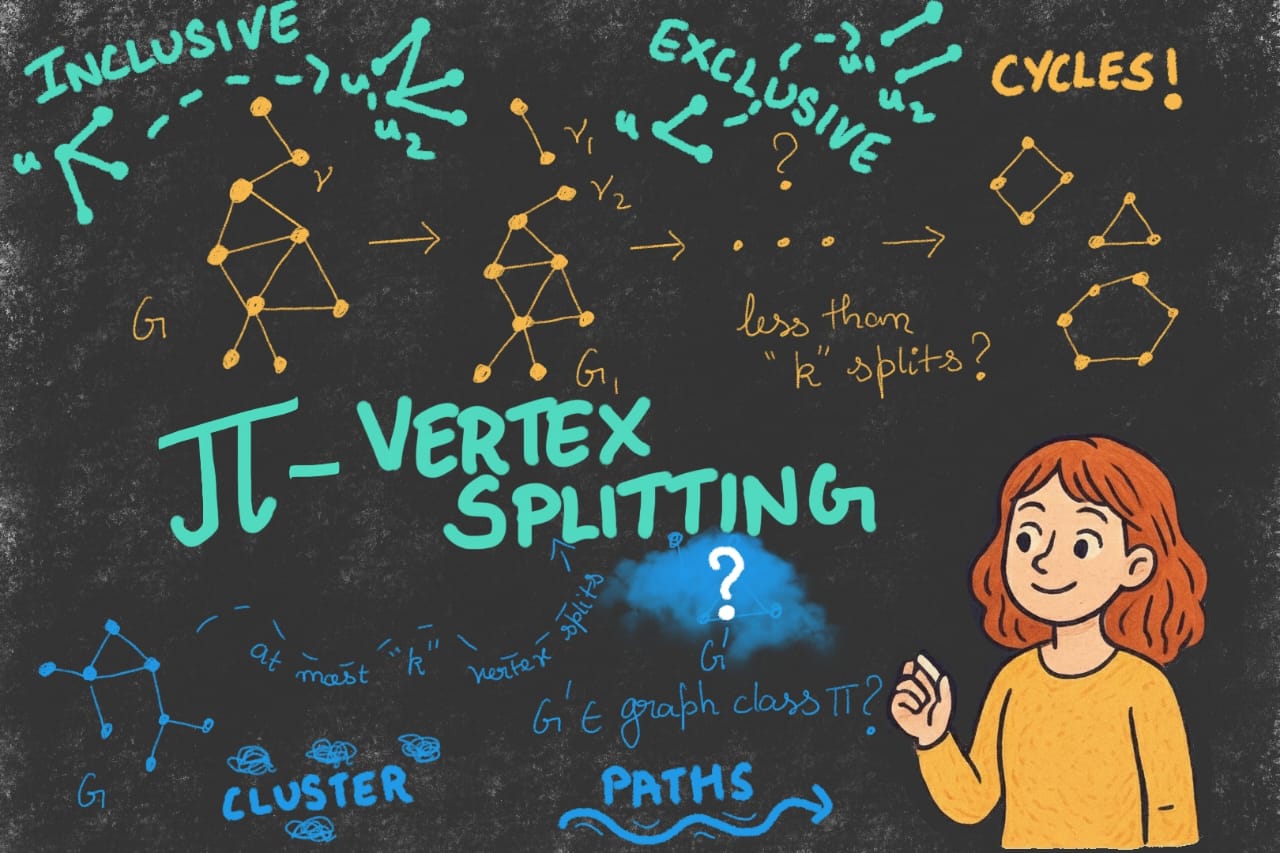 INCLUSIVE
u
u₁
u₂
EXCLUSIVE
u
u₁
u₂
CYCLES!
v
v₁
v₂
?
G
G₁
less than
"k" splits?
π-VERTEX
SPLITTING
?
at most "k" vertex splits
G'
G' ∈ graph class π?
G
CLUSTER
PATHS